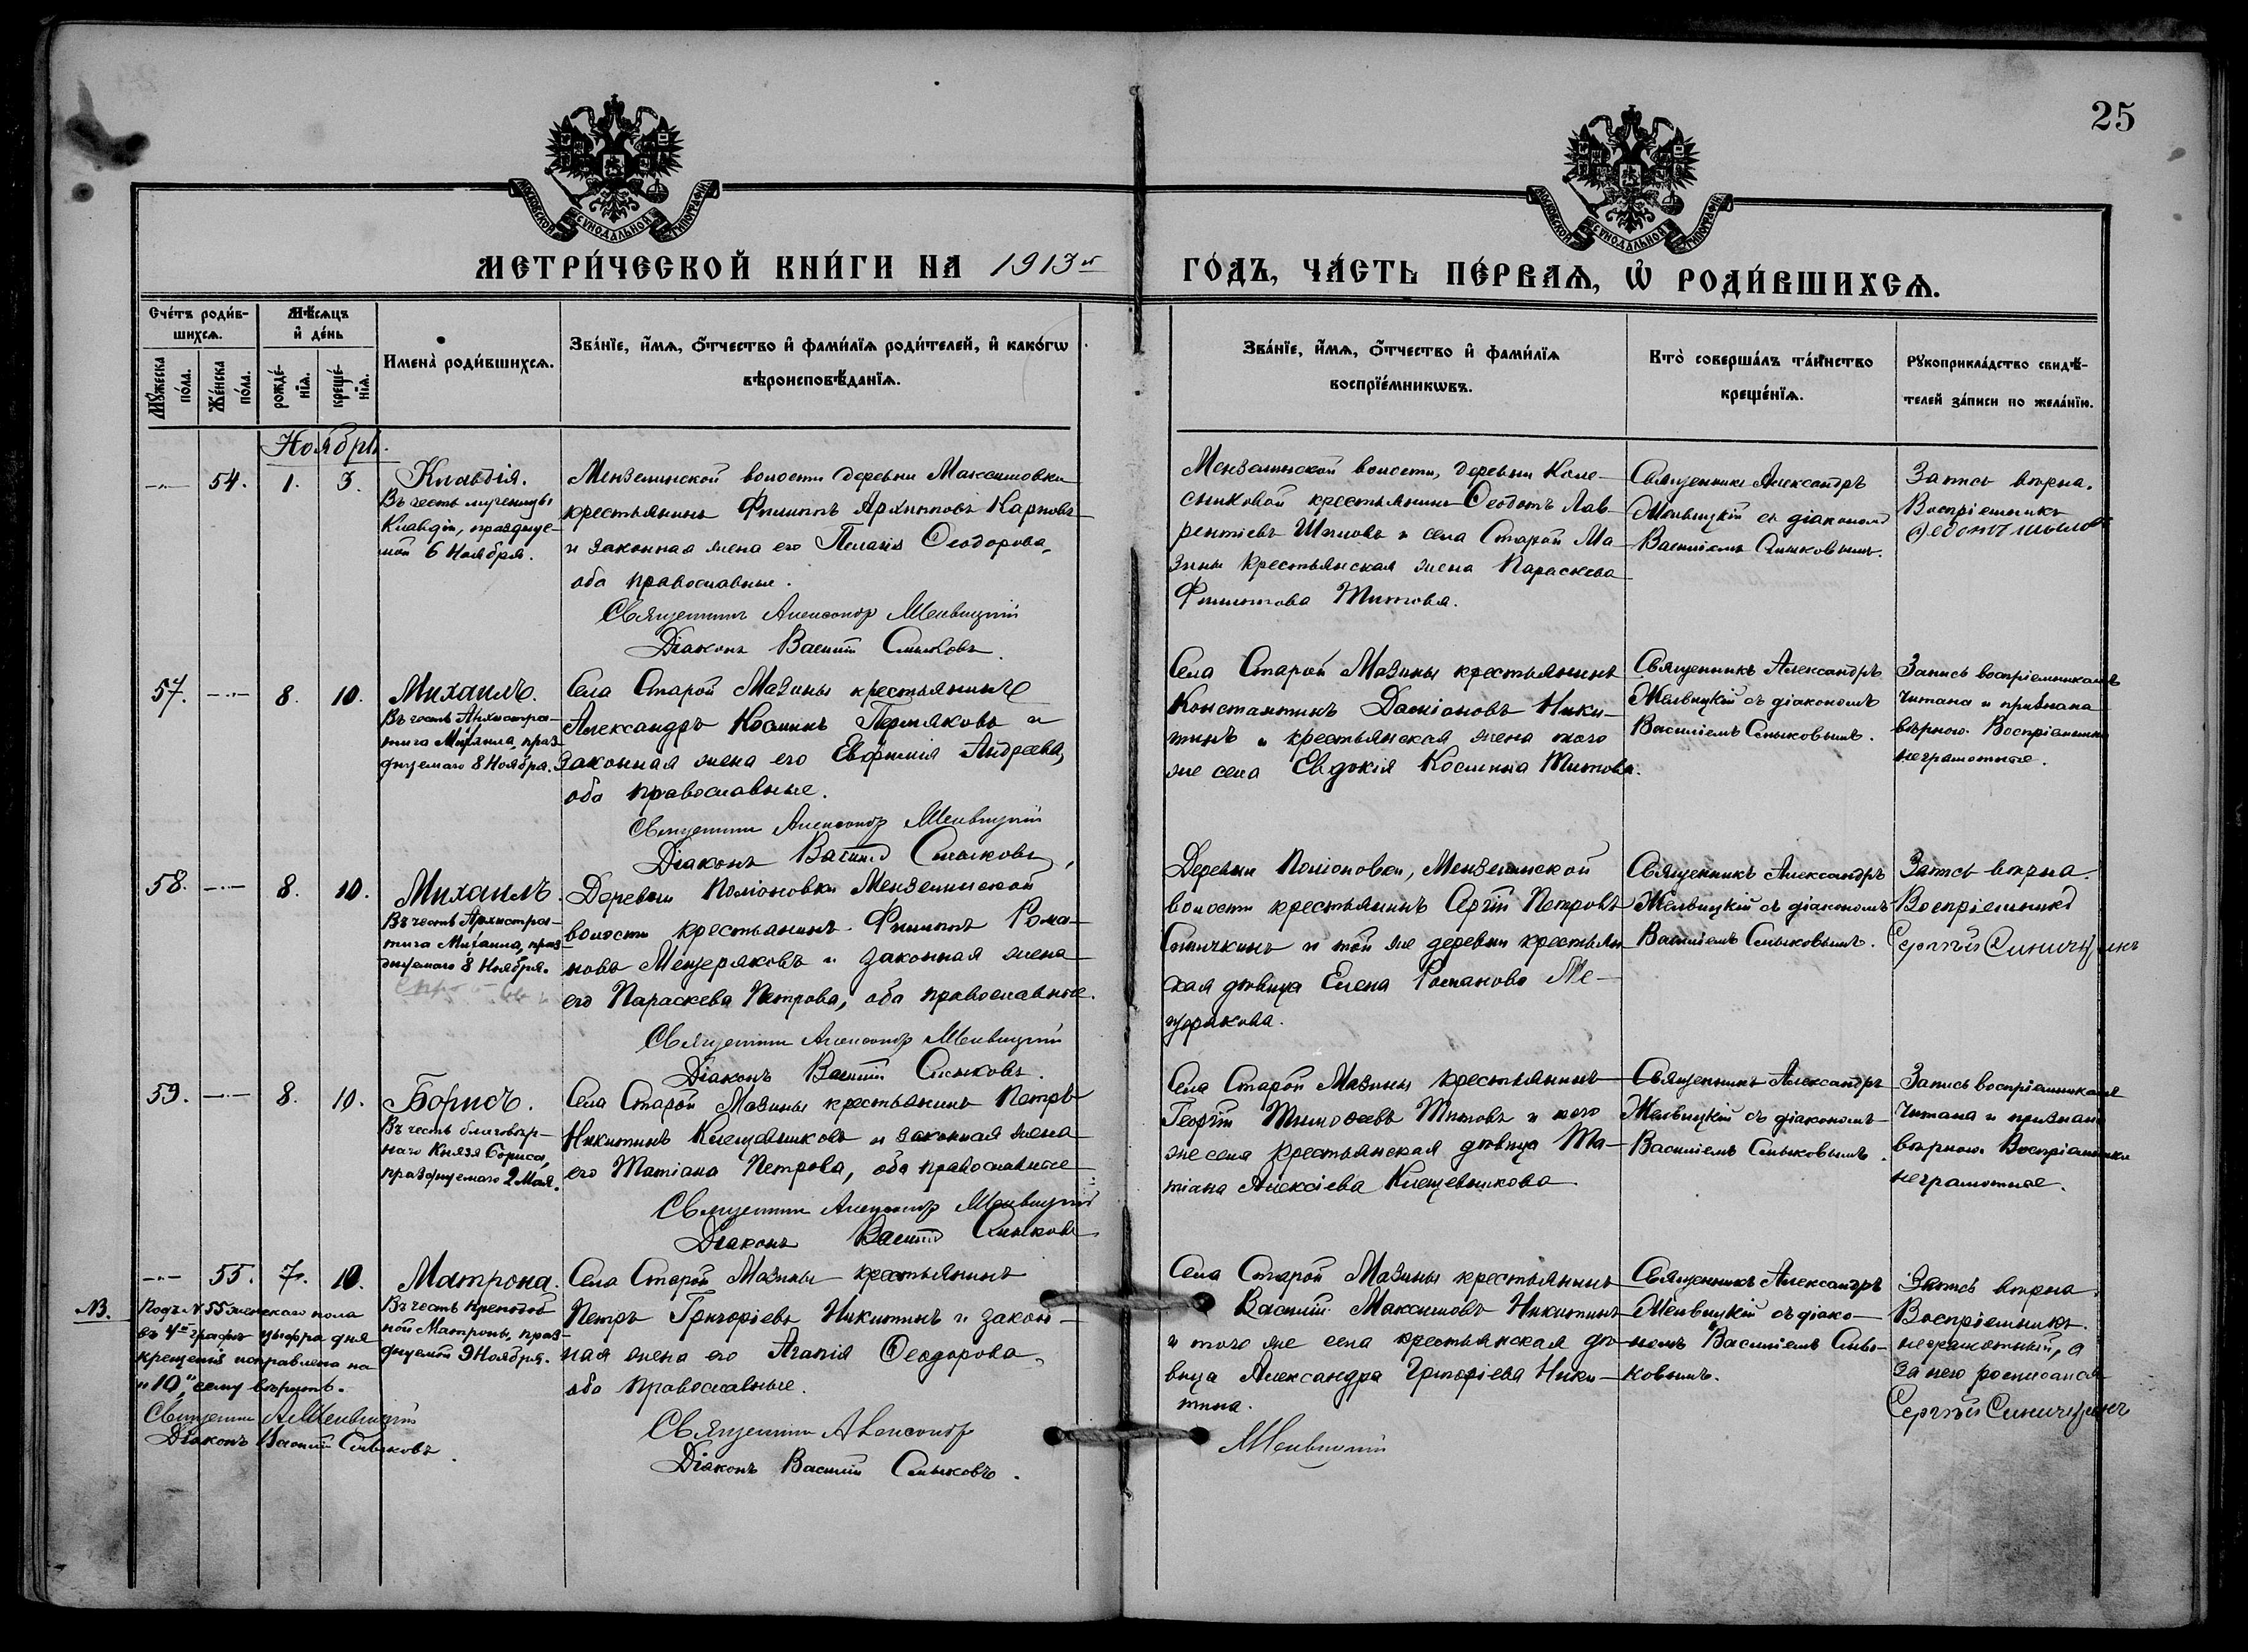 25
МОСКОВСКОЙ СѴНОДАЛЬНОЙ ТИПОГРАФІИ
МОСКОВСКОЙ СѴНОДАЛЬНОЙ ТИПОГРАФІИ
МЕТРИ́ЧЕСКОЙ КНИ́ГИ НА 1913й ГО́ДЪ, ЧА́СТЬ ПЕ́РВАѦ, Ѡ҆ РОДИ́ВШИХСѦ.
Сче́тъ роди́в-
шихсѧ.
Мꙋ́жеска
по́ла.
Же́нска
по́ла.
Мѣ́сѧцъ
и҆ де́нь
рожде́-
нїѧ.
креще́-
нїѧ.
Имена̀ роди́вшихсѧ.
Зва́нїе, и҆́мѧ, ѻ҆́тчество и҆ фами́лїѧ роди́телей, и҆ како́гѡ
вѣроисповѣ́данїѧ.
Зва́нїе, и҆́мѧ, ѻ҆́тчество и҆ фами́лїѧ
воспрїе́мникѡвъ.
Кто̀ соверша́лъ та́инство
креще́нїѧ.
Рꙋкоприкла́дство свидѣ́-
телей за́писи по жела́нїю.
Ноябрь.
54. 1. 3.
Клавдія.
Въ честь мученицы
Клавдіи, празднуе-
мой 6 Ноября.
Мензелинской волости деревни Максимовки
крестьянинъ Филиппъ Архиповъ Карповъ
и законная жена его Пелагія Ѳеодорова,
оба православные.
Священникъ Александр Мелвицкій
Діаконъ Василій Смыковъ.
Мензелинской волости, деревни Коле-
сниковой крестьянинъ Ѳеодотъ Лав-
рентіевъ и села Старой Ма-
зины крестьянская жена Параскева
Филиппова Титова.
Священникъ Александръ
Мелвицкій съ діакономъ
Василіемъ Смыковымъ.
Запись вѣрна.
Воспріемникъ
Федотъ
57. 8. 10.
Михаилъ.
Въ честь Архистра-
тига Михаила, праз-
днуемаго 8 Ноября.
Села Старой Мазины крестьянинъ
Александръ Косминъ Пермяковъ и
законная жена его Евфимія Андреева,
оба православные.
Священникъ Александр Мелвицкій
Діаконъ Василій Смыковъ.
Села Старой Мазины крестьянинъ
Константинъ Даміановъ Ники-
тинъ и крестьянская жена того
же села Евдокія Космина Титова.
Священникъ Александръ
Мелвицкій съ діакономъ
Василіемъ Смыковымъ.
Запись воспріемникамъ
читана и признана
вѣрною. Воспріемники
неграмотные.
58. 8. 10.
Михаилъ.
Въ честь Архистра-
тига Михаила, праз-
днуемаго 8 Ноября.
Деревни Мензелинской
волости крестьянинъ Филиппъ Рома-
новъ Мещеряковъ и законная жена
его Параскева Петрова, оба православные.
Священникъ Александр Мелвицкій
Діаконъ Василій Смыковъ.
Деревни Мензелинской
волости крестьянинъ Сергій Петровъ
и той же деревни крестьян-
ская дѣвица Елена Романова Ме-
щерякова.
Священникъ Александръ
Мелвицкій съ діакономъ
Василіемъ Смыковымъ.
Запись вѣрна.
Воспріемникъ
Сергѣй
59. 8. 10.
Борисъ.
Въ честь благовѣр-
наго Князя Бориса,
празднуемаго 2 Мая.
Села Старой Мазины крестьянинъ Петръ
Никитинъ Клещевниковъ и законная жена
его Татіана Петрова, оба православные
Священникъ Александр Мелвицкій
Діаконъ Василій Смыковъ
Села Старой Мазины крестьянинъ
Георгій Тимоѳеевъ Титовъ и того
же села крестьянская дѣвица Та-
тіана Алексіева Клещевникова.
Священникъ Александръ
Мелвицкій съ діакономъ
Василіемъ Смыковымъ.
Запись воспріемникамъ
читана и признана
вѣрною. Воспріемники
неграмотные.
55. 7. 10.
Матрона.
Въ честь преподоб-
ной Матроны, праз-
днуемой 9 Ноября.
Села Старой Мазины крестьянинъ
Петръ Григоріевъ Никитинъ и закон-
ная жена его Агапія Ѳеодорова,
оба православные.
Священникъ Александр Мелвицкій
Діаконъ Василій Смыковъ.
Села Старой Мазины крестьянинъ
Василій Максимовъ Никитинъ
и того же села крестьянская дѣ-
вица Александра Григоріева Ники-
тина.
Священникъ Александръ
Мелвицкій съ діако-
номъ Василіемъ Смы-
ковымъ.
Запись вѣрна.
Воспріемникъ
неграмотный, а
за него росписался
Сергѣй
NB. Подъ № 55 женскаго пола
въ 4й графѣ цыфра дня
крещенія исправлена на
„10", сему вѣрить.
Священникъ А Мелвицкій
Діаконъ Василій Смыковъ.